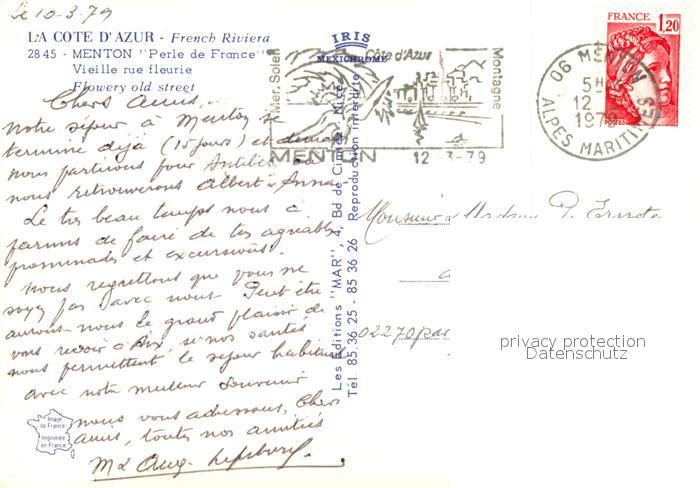 Le 10-3-79
LA COTE D'AZUR - French Riviera
2845 - MENTON "Perle de France"
Vieille rue fleurie
Flowery old street
IRIS
MEXICHROME
Chers Amis,
notre séjour à Menton se
termine déjà (15 jours) et demain
nous partirons pour Antibes où
nous retrouverons Albert & Anna
Le très beau temps nous a
permis de faire de très agréables
promenades et excursions.
Nous regrettons que vous ne
soyez pas avec nous Peut être
aurons-nous le grand plaisir de
vous revoir à Aix, si nos santés
nous permettent le séjour habituel
avec notre meilleur souvenir
nous vous adressons, Chers
amis, toutes nos amitiés
M & Aug.
Image
de France
Imprimée
en France
Les Editions "MAR", 4, Bd de Cimiez, Nice
Tél. 85 36 25 - 85 36 26 Reproduction interdite
Mer, Soleil
Côte d'Azur
Montagne
MENTON
12-3-79
06 MENTON
5H
12
1979
ALPES MARITIMES
FRANCE
1,20
POSTES
Monsieur & Madame P.
02270
privacy protection
Datenschutz